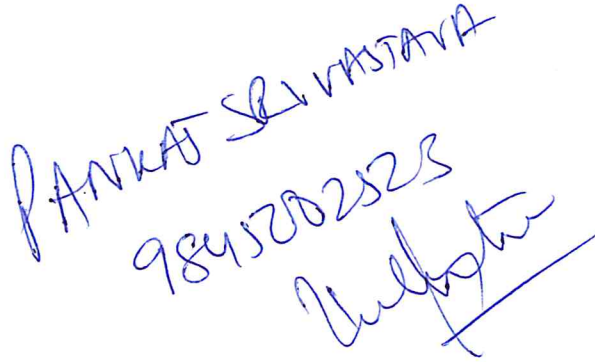 PANKAJ SRIVASTAVA
9845202523